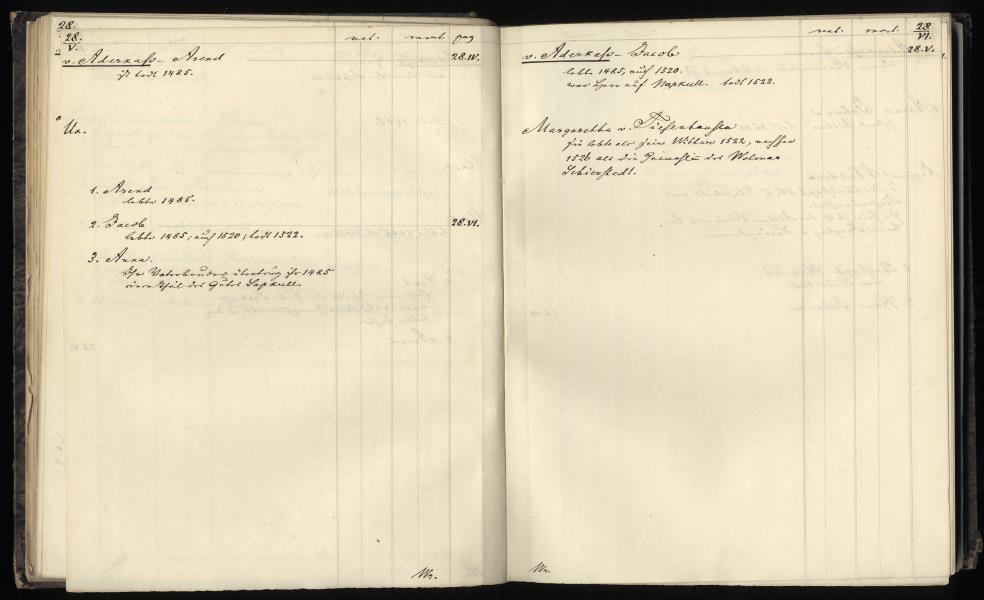 28.
28.
V.
nat. mort. pag
v. Aderkass - Arend 28.IV.
ist todt 1485.
Ux.
1. Arend
lebte 1485.
2. Jacob 28.VI.
lebte 1485, auch 1520, todt 1522.
3. Anna.
Ihr Vaterbruder übertrug ihr 1485
einen Theil des Gutes Lapkull.
Wr.
nat. mort. 28
VI.
v. Aderkass - Jacob 28.V.
lebte 1485, auch 1520.
war Herr auf Napkull. todt 1522.
Margaretha v. Tiesenhausen
sie lebte als seine Wittwe 1522, nachher
1526 als die Gemahlin des Wolmar
Schierstedt.
Wr.